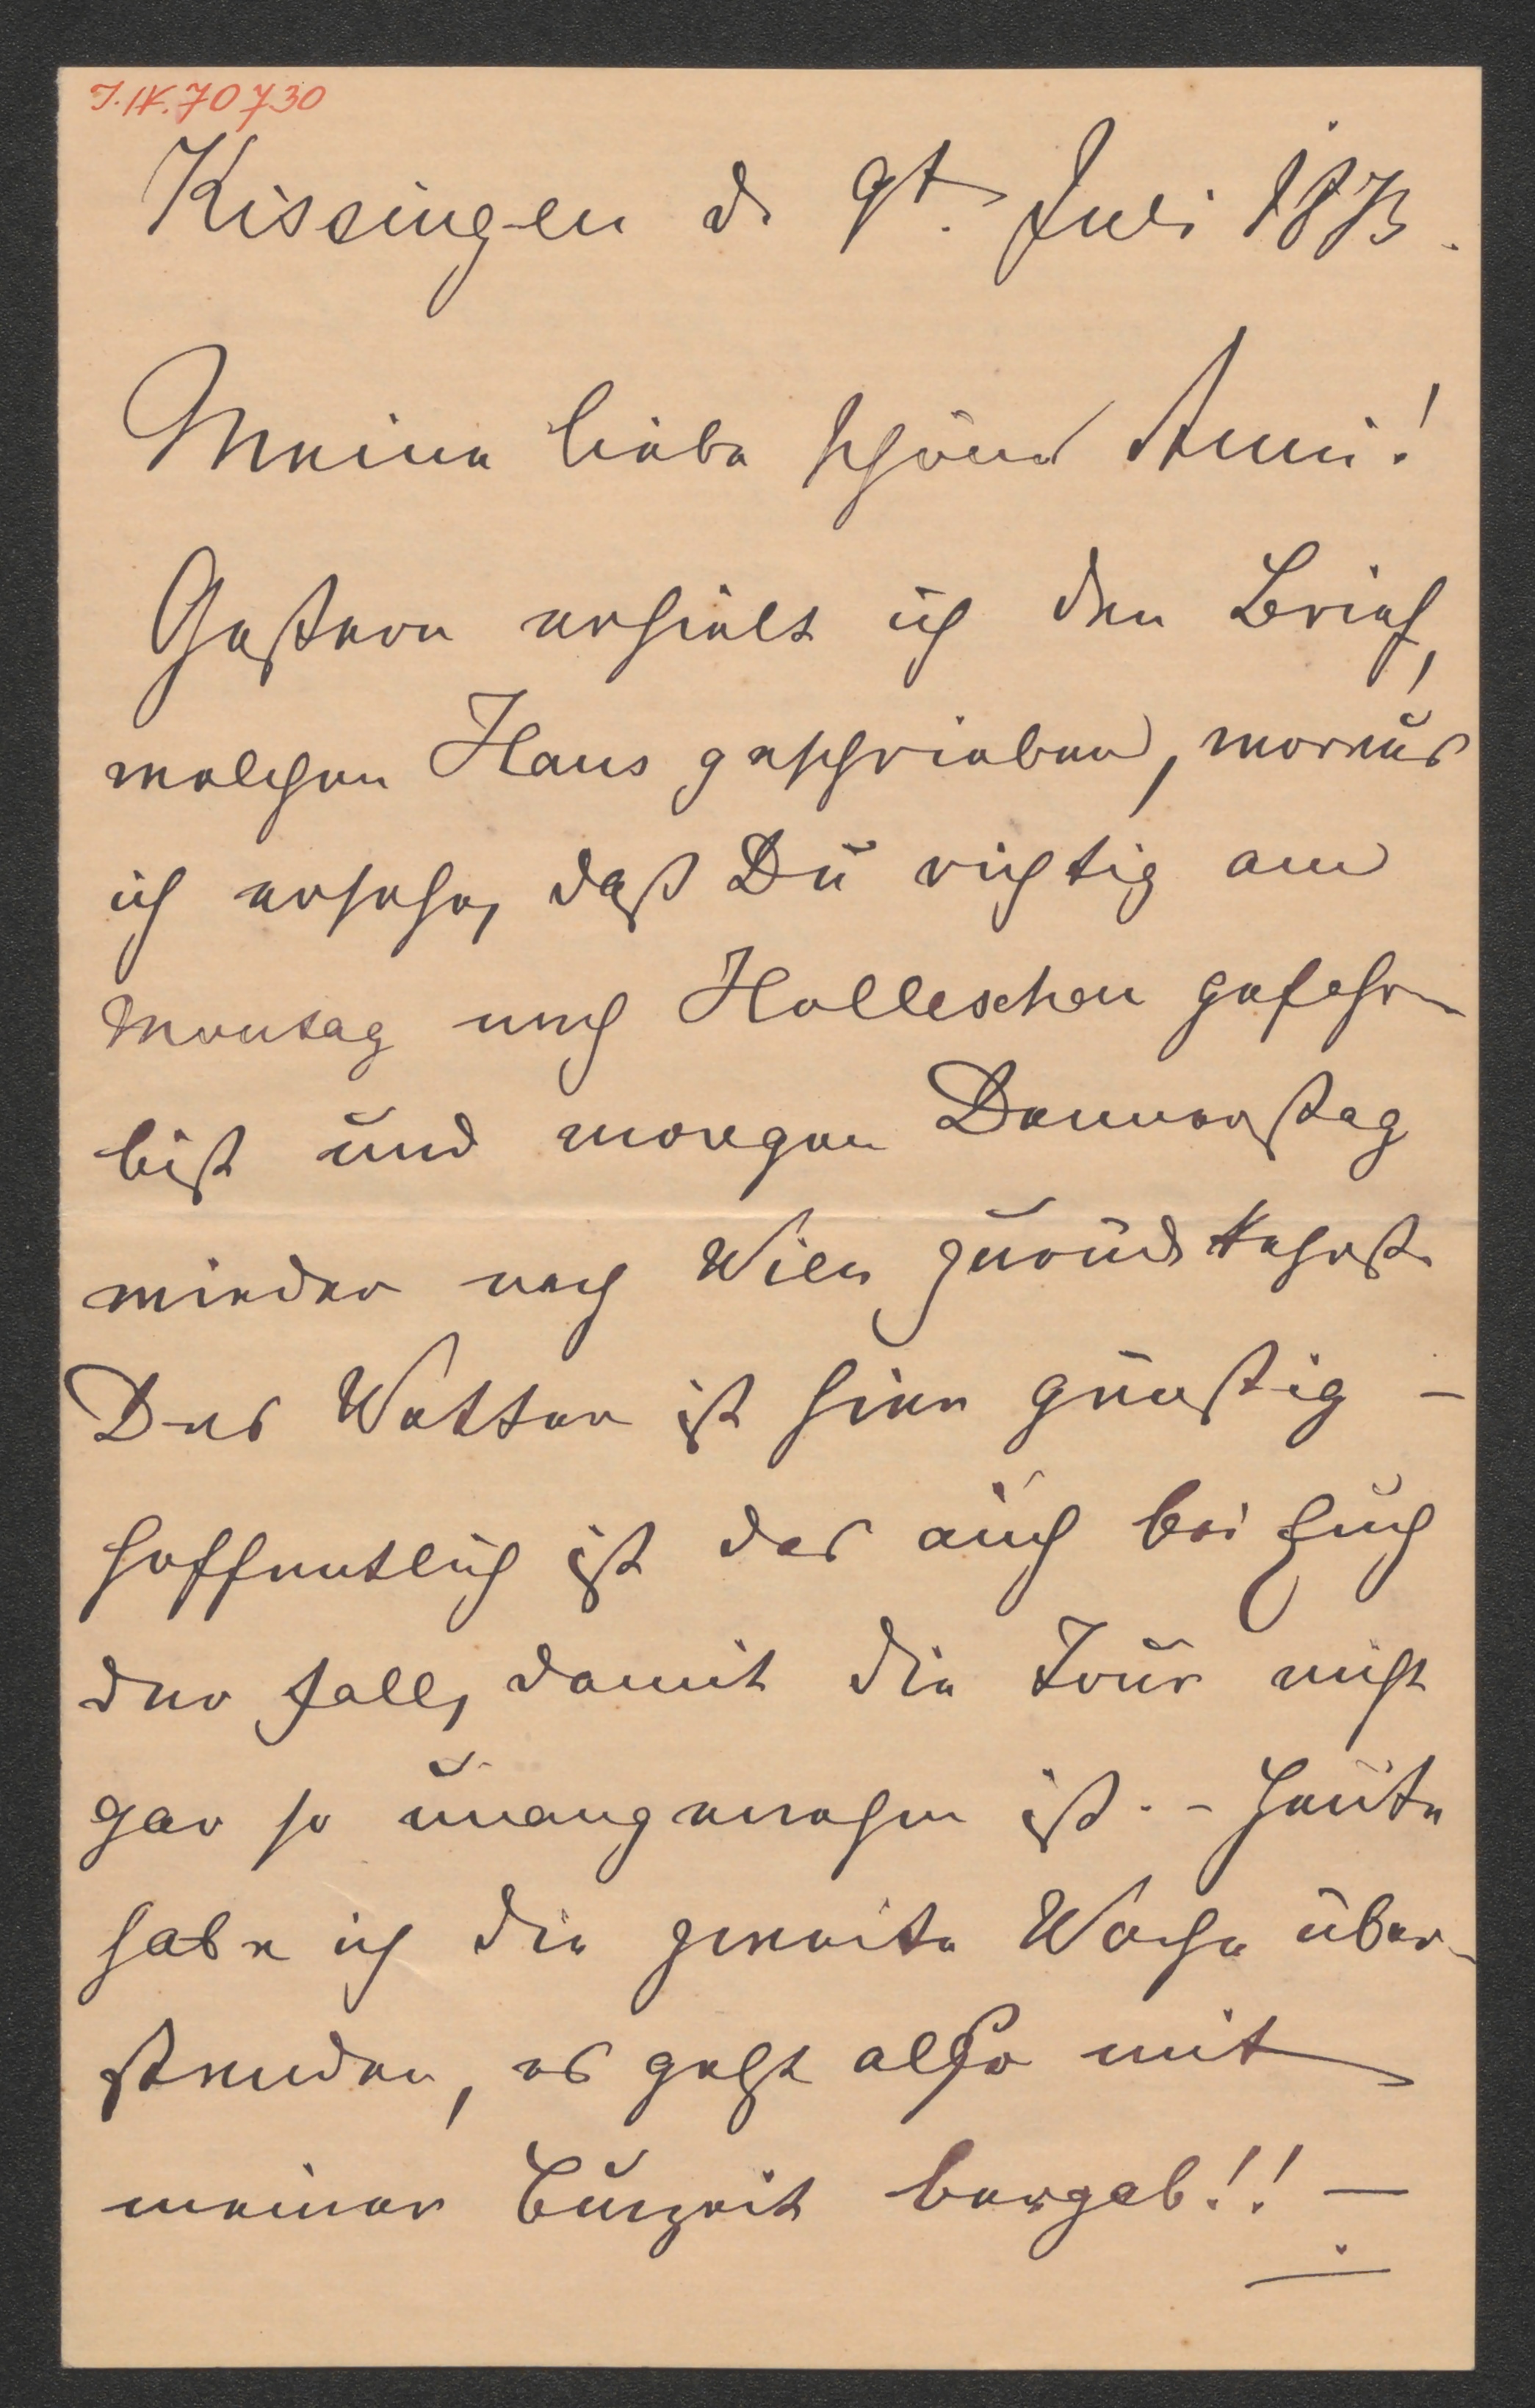 J.N. 70730
Kissingen d. 9t. Juli 1873.
Meine liebe schöne Anni!
Gestern erhielt ich den Brief,
welchen Hans geschrieben, woraus
ich ersehe, daß Du richtig am
Montag nach Holleschau gefahren
bist und morgen Donnerstag
wieder nach Wien zurück kehrst
Das Wetter ist hier günstig –
hoffentlich ist das auch bei Euch
der Fall, damit die Tour nicht
gar so unangenehm ist. – Heute
habe ich die zweite Woche über-
standen, es geht also mit
meiner Curzeit bergab!! —